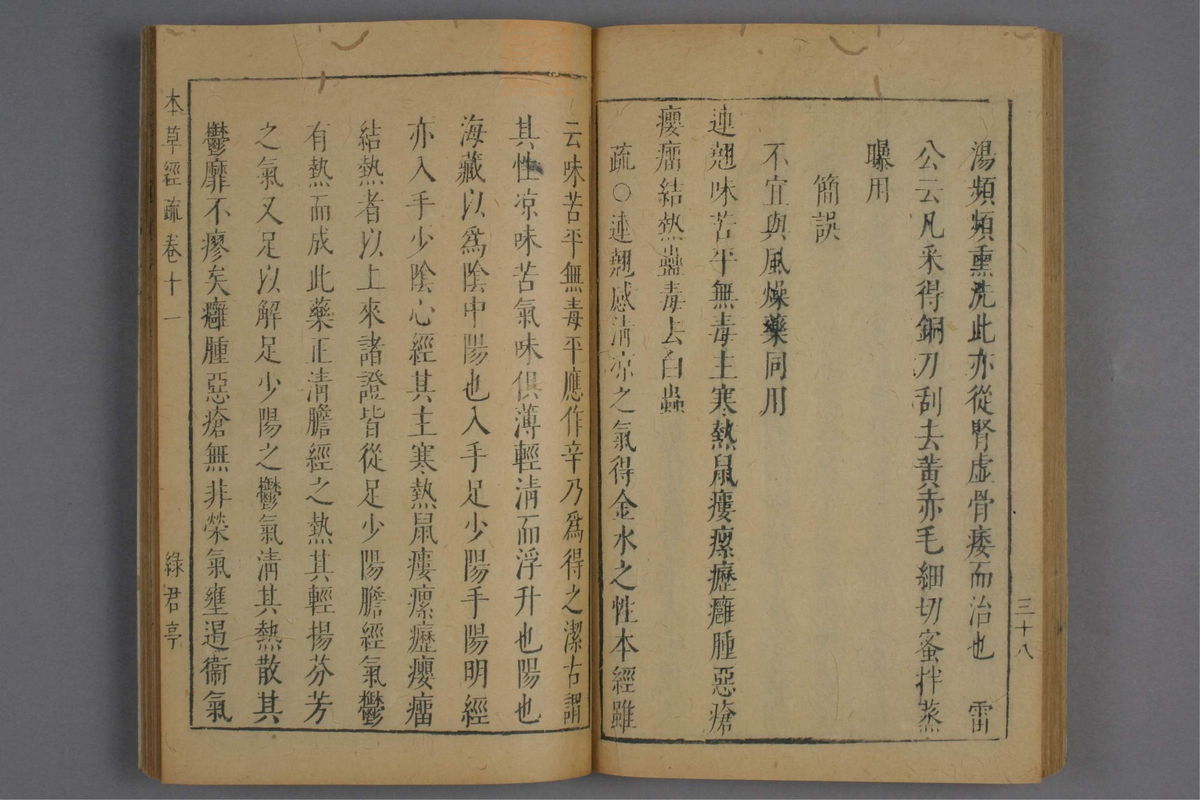 三十八
湯頻頻熏洗此亦從腎虛骨痿而治也　雷
公云凡采得銅刀刮去黃赤毛細切蜜拌蒸
曝用
簡誤
不宜與風燥藥同用
連翹味苦平無毒主寒熱鼠瘻瘰癧癰腫惡瘡
癭瘤結熱蠱毒去白蟲
疏○連翹感清凉之氣得金水之性本經雖
云味苦平無毒平應作辛乃爲得之潔古謂
其性凉味苦氣味俱薄輕清而浮升也陽也
海藏以爲陰中陽也入手足少陽手陽明經
亦入手少陰心經其主寒熱鼠瘻瘰癧癭瘤
結熱者以上來諸證皆從足少陽膽經氣鬱
有熱而成此藥正清膽經之熱其輕揚芬芳
之氣又足以解足少陽之鬱氣清其熱散其
鬱靡不瘳矣癰腫惡瘡無非榮氣壅遏衞氣
本草經疏卷十一
綠君亭